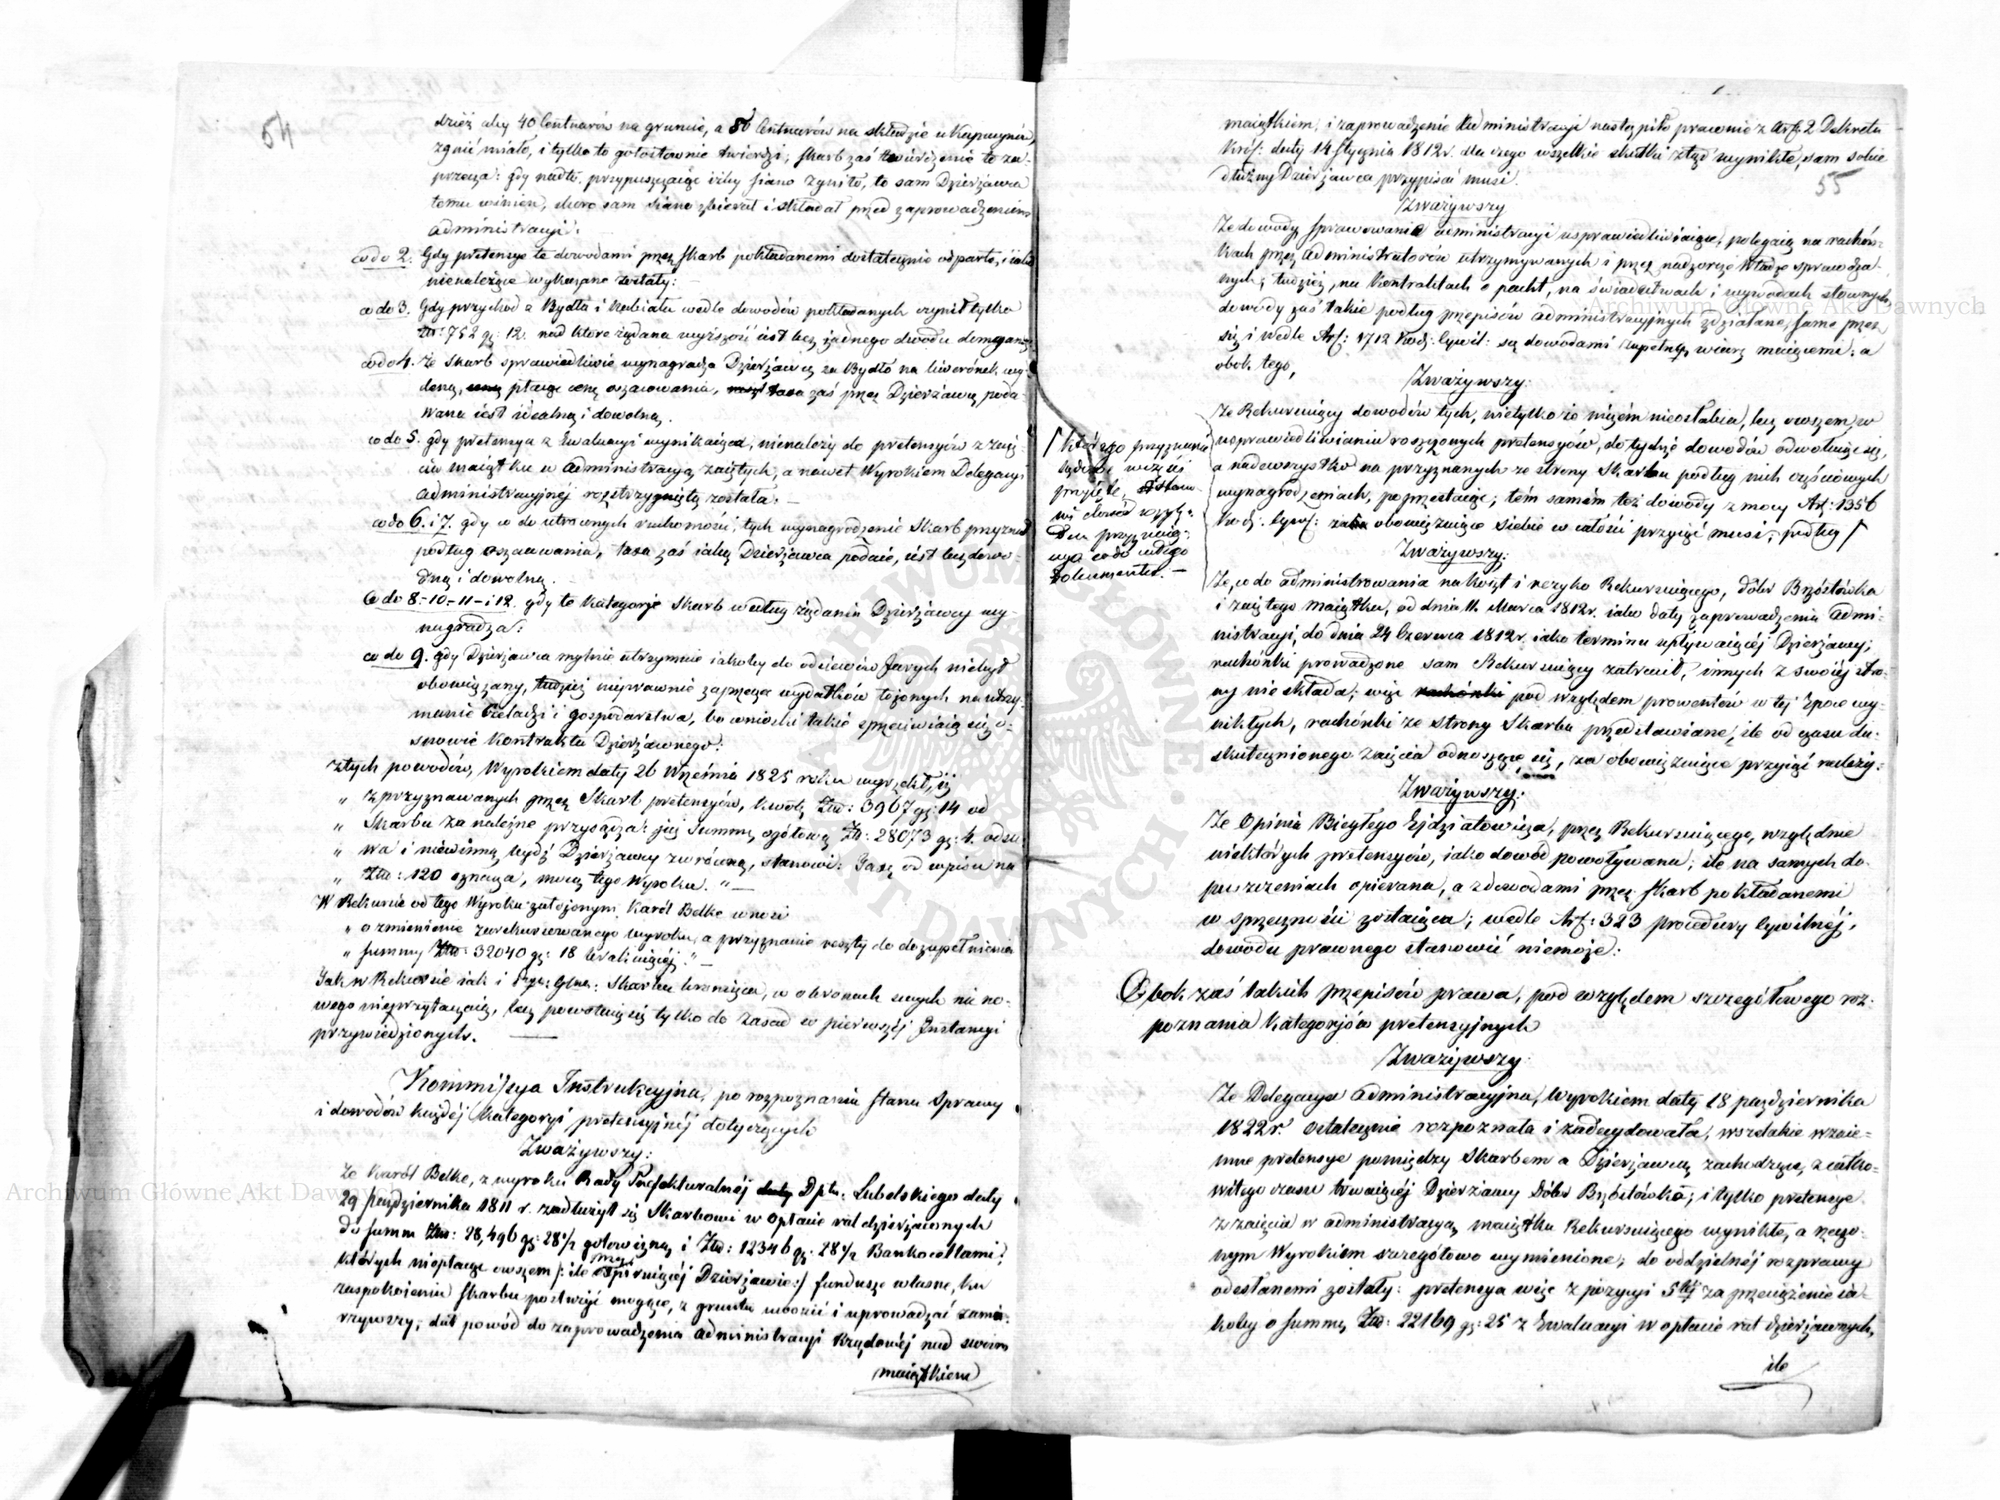 54
dzież aby 40 Centnarów na gruncie, a 86 Centnarów na składzie u Kapucynów,
zgnić miało, i tylko to gołosłownie twierdzi; Skarb zaś twierdzenie to za-
przecza: gdy nadto, przypuszczaiąc iżby siano zgniło, to sam Dzierżawca
temu winien, skoro sam siano zbierał i składał przed zaprowadzeniem
administracyi:
co do 2. Gdy pretensye te dowodami przez Skarb pokładanemi dostatecznie odparte, i iako
nienależące wykazane zostały:
co do 3. Gdy przychód z Bydła i Nabiału wedle dowodów pokładanych czynił tylko
Złł: 752 gr: 12. nad które żądana wyższość iest bez żadnego dowodu domagana:
co do 4. Że Skarb sprawiedliwie wynagradza Dzierżawcę za Bydło na liwerónek wy-
daną, płacąc cenę oszacowania, zaś przez Dzierżawcę poda-
wana iest idealną i dowolną.
co do 5. gdy pretensya z Ewaluacyi wynikaiąca, nienależy do pretensyów z zaię-
cia maiątku w administracyą zaiętych, a nawet Wyrokiem Delegacyi
administracyjnéj rozstrzygniętą została. —
co do 6. i 7. gdy co do utraconych ruchomości, tych wynagrodzenie Skarb przyznał
podług oszacowania, taxa zaś iaką Dzierżawca podaie, iest bezdowo-
dną i dowolną.
co do 8.-10.-11-i 12. gdy te Kategorje Skarb według żądania Dzierżawcy wy-
nagradza:
co do 9. gdy Dzierżawca mylnie utrzymuie iakoby do odsiewów Jarych niebył
obowiązany, tudzież nieprawnie zaprzecza wydatków łożonych na utrzy-
manie Czeladzi i gospodarstwa, bo wnioski takie sprzeciwiaią się o-
snowie Kontraktu Dzierżawnego:
z tych powodów, Wyrokiem daty 26 Września 1825 roku wyrzekł, iż
„ z przyznawanych przez Skarb pretensyów, kwotę Złł: 3967 gr: 14 od
„ Skarbu za należne przysądza: iuż Summę ogółową Złł: 28073 gr: 4. odsu-
„ wa i niewinną bydź Dzierżawcy zwróconą, stanowi: Taxę od wpisu na
„ Złł: 120 oznacza, mocą tego Wyroku. „ —
W Rekursie od tego Wyroku założonym, Karól Belke wnosi
„ o zmienienie zarekurowanego wyroku, a przyznanie reszty do dozupełnienia
„ Summy Złł: 32040 gr: 18 kwalifikuiącéj. „ —
Jak w Rekursie iak i Skarbu broniąca, w obronach swych nic no-
wego nieprzytaczaią, lecz powołuią się tylko do zasad w pierwszéj Instancyi
przywiedzionych. —
Kommissya Instrukcyjna, po rozpoznaniu stanu Sprawy
i dowodów każdéj Kategoryi pretensyjnéj dotyczących
Zważywszy:
że Karól Belke, z wyroku Rady Prefekturalnéj Dptu. Lubelskiego daty
29 października 1811 r. zadłużył się Skarbowi w opłacie rat dzierżawnych
do Summ Złł: 28,496 gr: 28½ gotowizną, i Złł: 12346 gr: 28½ Bankocetlami,
których niopłacąc owszem /: ile Dzierżawie :/ fundusze własne, ku
zaspokoieniu Skarbu posłużyć mogące, z gruntu uwozić i uprowadzać zamie-
rzywszy; dał powód do zaprowadzenia administracyi Rządowéj nad swoim
maiątkiem
55
maiątkiem, i zaprowadzenie administracyi nastąpiło prawnie z Art: 2 Dekretu
Król: daty 14 Stycznia 1812 r. dla czego wszelkie skutki ztąd wynikłe, sam sobie
dłużny Dzierżawca przypisać musi.
Zważywszy
Że dowody sprawowania administracyi usprawiedliwiaiące, polegaią na rachun-
kach przez administratorów utrzymywanych i przez nadzorcze Władze sprawdza-
nych, tudzież, na Kontraktach o pacht, na świadectwach i wywodach słownych,
dowody zaś takie podług przepisów administracyjnych zdziałane, same przez
się i wedle Art: 1712 Kod: Cywil: są dowodami zupełną wiarę maiącemi; a
obok tego,
Zważywszy:
Że Rekursuiący dowodów tych, nietylko że niczém nieosłabia, lecz owszem w
usprawiedliwianiu roszczonych pretensyów, do tychże dowodów odwołuie się,
a nadewszystko na przyznanych ze strony Skarbu podług nich częściowych
wynagrodzeniach, poprzestaiąc; tém samém też dowody z mocy Art: 1356
Kod: Cywil: obowiązuiące siebie w całości przyiąć musi; podług /
/ którego przyznanie
sądowe wzięte
przyjęte, stano-
wi dowód wzglę-
dem przyznaią-
cego co do całego
dokumentu. —
Zważywszy:
Że, co do administrowania na koszt i rezyko Rekursuiącego, dóbr Brzóstówka
i zaiętego maiątku, od dnia 11. Marca 1812 r. iako daty zaprowadzenia admi-
nistracyi, do dnia 24 Czerwca 1812 r. iako terminu upływaiącéj Dzierżawy;
rachónki prowadzone sam Rekursuiący zatracił, innych z swoiéj stro-
ny nieskłada; więc pod względem prowentów w téj Epoce wy-
nikłych, rachónki ze strony Skarbu przedstawiane, ile od czasu do-
skutecznionego zaięcia odnoszące się, za obowiązuiące przyiąć należy:
Zważywszy:
Że Opinia Biegłego Ejdziatowicza, przez Rekursuiącego, względnie
niektórych pretensyów, iako dowód powoływana; ile na samych do-
puszczeniach opierana, a z dowodami przez Skarb pokładanemi
w sprzeczności zostaiąca; wedle Art: 323 procedury Cywilnéj,
dowodu prawnego stanowić niemoże:
Obok zaś takich przepisów prawa, pod względem szczegółowego roz-
poznania Kategorjów pretensyjnych
Zważywszy:
Że Delegacya administracyjna, Wyrokiem daty 18 października
1822 r. ostatecznie rozpoznała i zadecydowała, wszelakie wzaie-
mne pretensye pomiędzy Skarbem a Dzierżawcą zachodzące, z całko-
witego czasu trwaiącéj Dzierżawy dóbr Brzóstówka; i tylko pretensye
z zaięcia w administracyą, maiątku Rekursuiącego wynikłe, a rzeczo-
nym Wyrokiem szczegółowo wymienione; do oddzielnéj rozprawy
odesłanemi zostały: pretensya więc z pozycyi 5téj za przeciążenie ia-
koby o Summę Złł: 22169 gr: 25 z Ewaluacyi w opłacie rat dzierżawnych,
ile
Archiwum Główne Akt Dawnych
Archiwum Główne Akt Dawnych